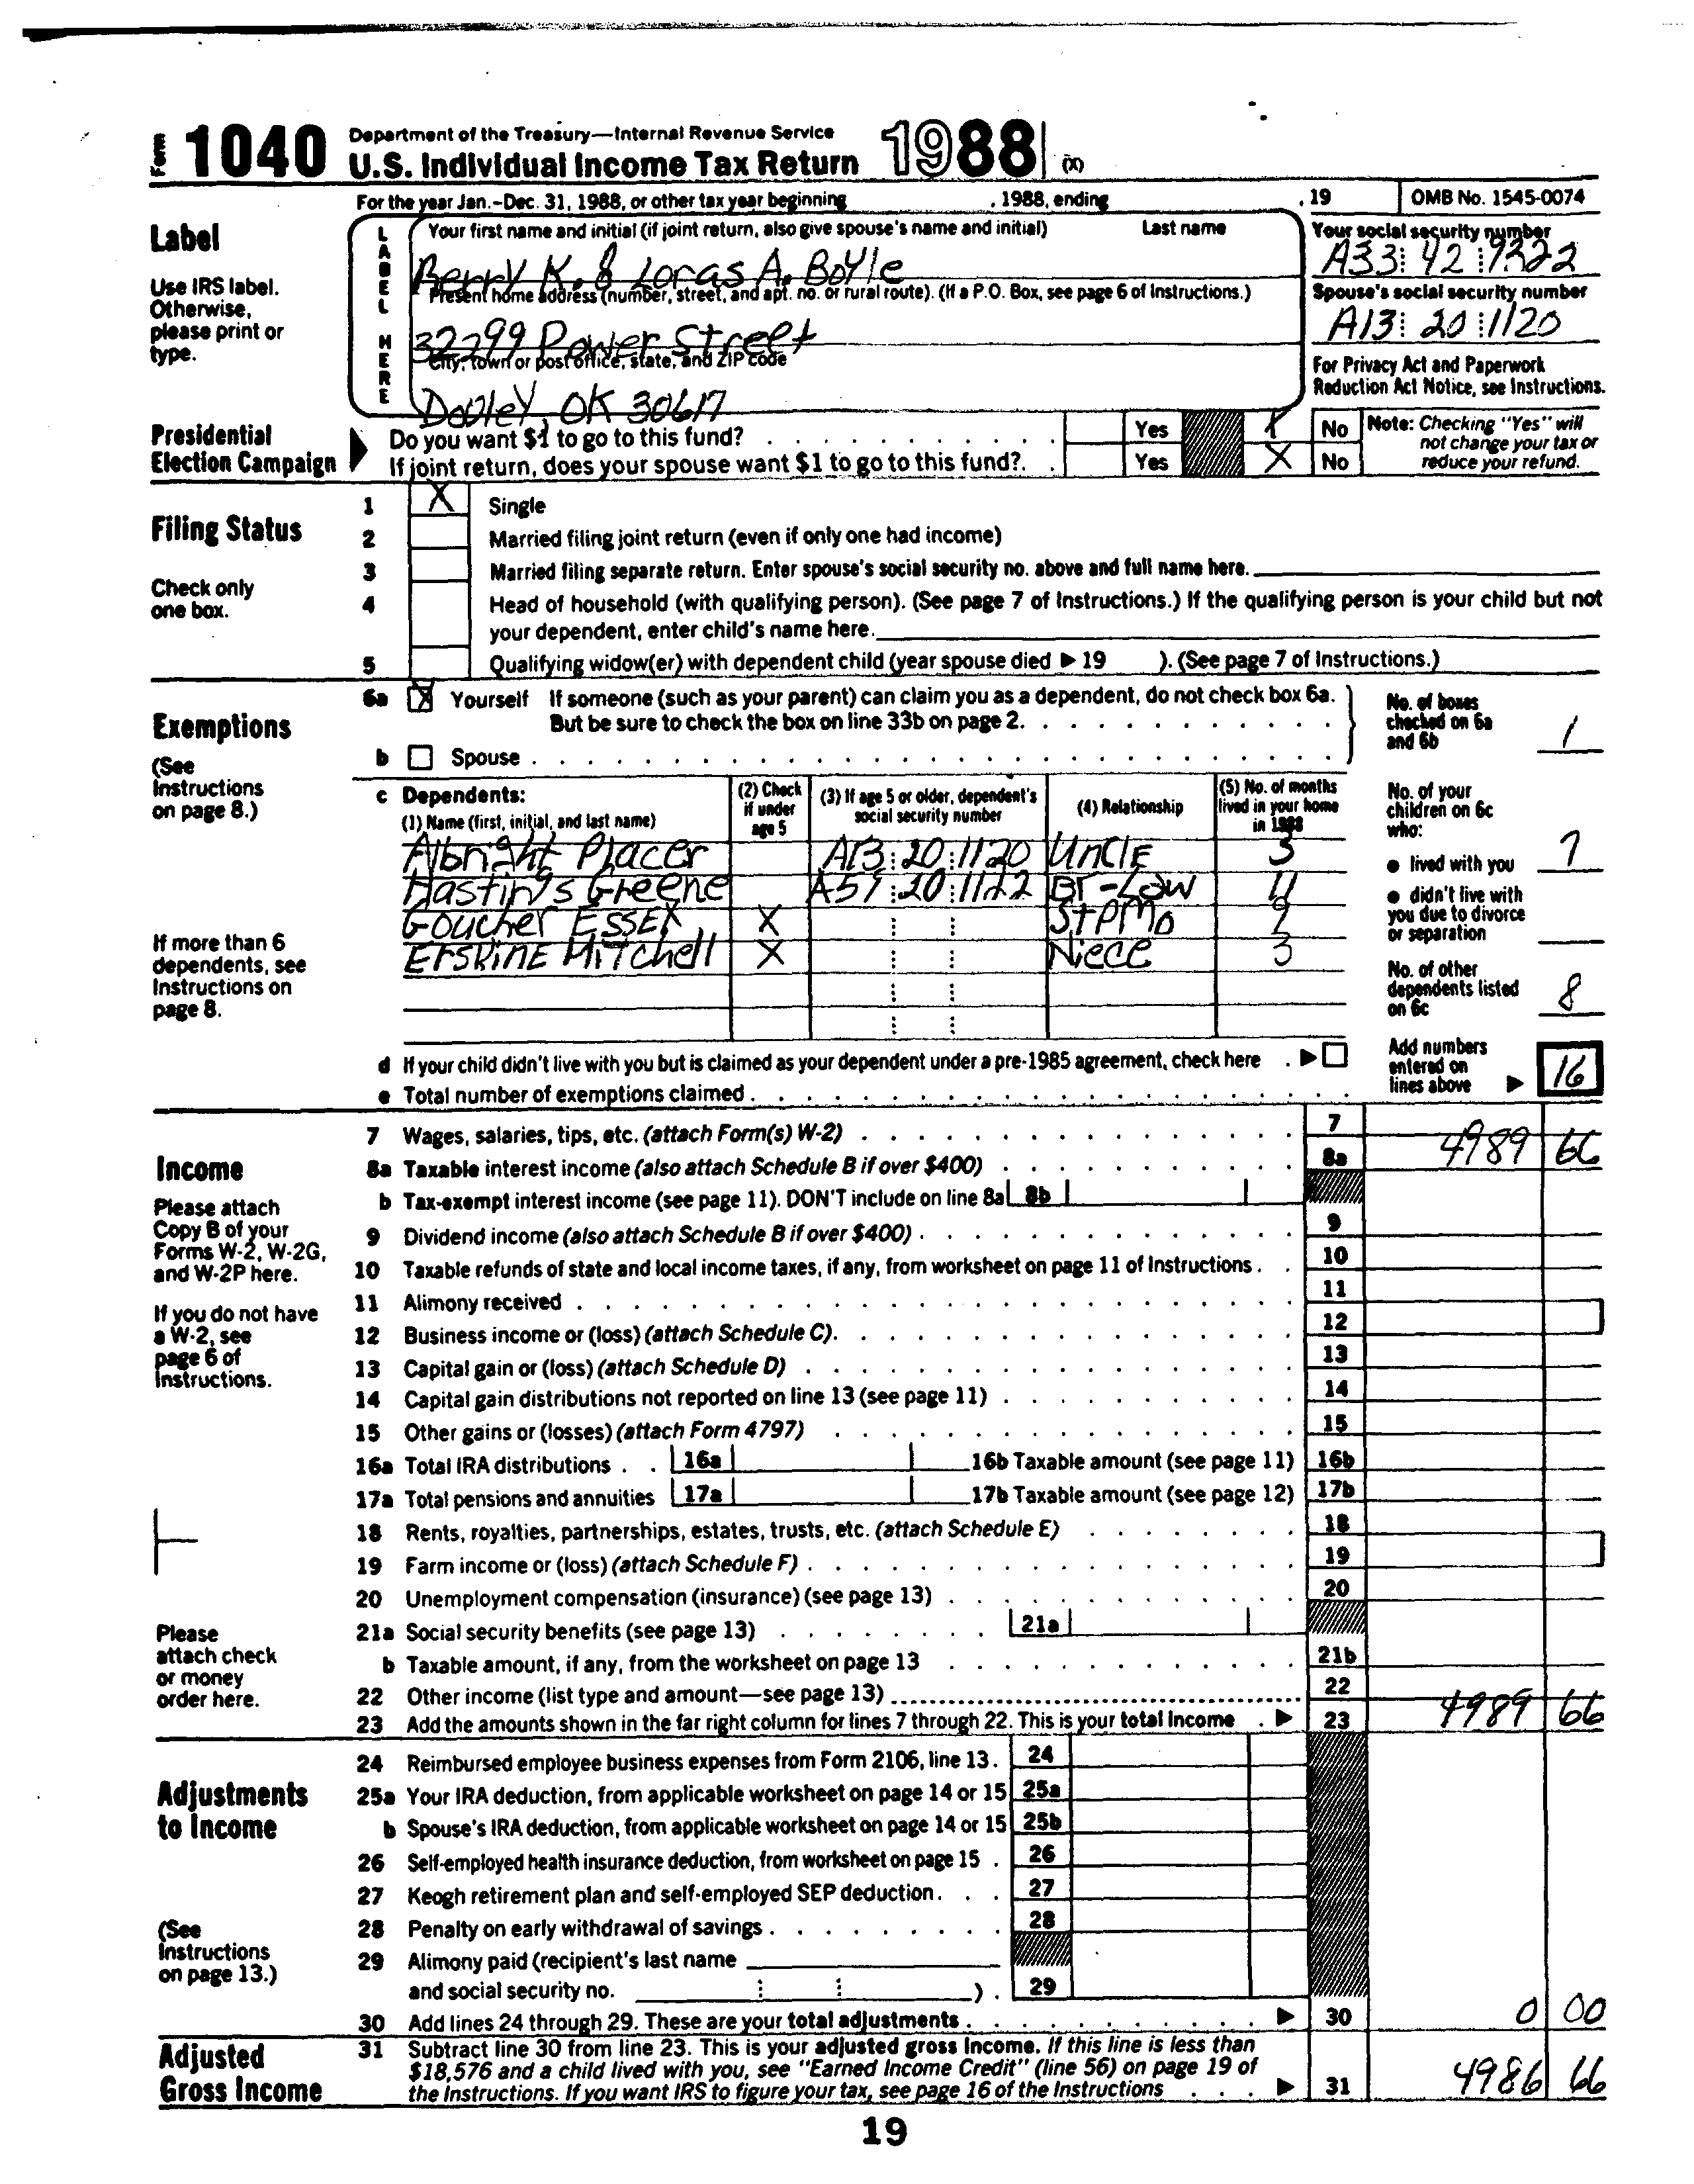 Form 1040 Department of the Treasury—Internal Revenue Service
U.S. Individual Income Tax Return 1988 (X)
For the year Jan.-Dec. 31, 1988, or other tax year beginning , 1988, ending , 19 OMB No. 1545-0074
Label
Use IRS label.
Otherwise,
please print or
type.
LABEL HERE
Your first name and initial (if joint return, also give spouse's name and initial) Last name
Berry K. & Loras A. Boyle
Your social security number
A33 42 9322
Present home address (number, street, and apt. no. or rural route). (If a P.O. Box, see page 6 of Instructions.)
32299 Power Street
Spouse's social security number
A13 20 1120
City, town or post office, state, and ZIP code
Dooley OK 30617
For Privacy Act and Paperwork
Reduction Act Notice, see Instructions.
Presidential
Election Campaign
Do you want $1 to go to this fund? Yes X No
If joint return, does your spouse want $1 to go to this fund? Yes X No
Note: Checking "Yes" will
not change your tax or
reduce your refund.
Filing Status
Check only
one box.
1 X Single
2 Married filing joint return (even if only one had income)
3 Married filing separate return. Enter spouse's social security no. above and full name here.
4 Head of household (with qualifying person). (See page 7 of Instructions.) If the qualifying person is your child but not
your dependent, enter child's name here.
5 Qualifying widow(er) with dependent child (year spouse died ▶ 19 ). (See page 7 of Instructions.)
Exemptions
(See
Instructions
on page 8.)
6a X Yourself If someone (such as your parent) can claim you as a dependent, do not check box 6a.
But be sure to check the box on line 33b on page 2.
b Spouse
No. of boxes
checked on 6a
and 6b 1
c Dependents:
(1) Name (first, initial, and last name)
(2) Check
if under
age 5
(3) If age 5 or older, dependent's
social security number
(4) Relationship
(5) No. of months
lived in your home
in 1988
Albright Placer A13 20 1120 Uncle 3
Hastings Greene A51 20 1122 Br-Law 4
Goucher Essex X StpMo 2
Erskine Mitchell X Niece 3
If more than 6
dependents, see
Instructions on
page 8.
No. of your
children on 6c
who:
● lived with you 7
● didn't live with
you due to divorce
or separation
No. of other
dependents listed
on 6c 8
d If your child didn't live with you but is claimed as your dependent under a pre-1985 agreement, check here ▶
e Total number of exemptions claimed
Add numbers
entered on
lines above ▶ 16
Income
Please attach
Copy B of your
Forms W-2, W-2G,
and W-2P here.
If you do not have
a W-2, see
page 6 of
Instructions.
Please
attach check
or money
order here.
7 Wages, salaries, tips, etc. (attach Form(s) W-2) 7 4989 66
8a Taxable interest income (also attach Schedule B if over $400) 8a
b Tax-exempt interest income (see page 11). DON'T include on line 8a 8b
9 Dividend income (also attach Schedule B if over $400) 9
10 Taxable refunds of state and local income taxes, if any, from worksheet on page 11 of Instructions 10
11 Alimony received 11
12 Business income or (loss) (attach Schedule C) 12
13 Capital gain or (loss) (attach Schedule D) 13
14 Capital gain distributions not reported on line 13 (see page 11) 14
15 Other gains or (losses) (attach Form 4797) 15
16a Total IRA distributions 16a 16b Taxable amount (see page 11) 16b
17a Total pensions and annuities 17a 17b Taxable amount (see page 12) 17b
18 Rents, royalties, partnerships, estates, trusts, etc. (attach Schedule E) 18
19 Farm income or (loss) (attach Schedule F) 19
20 Unemployment compensation (insurance) (see page 13) 20
21a Social security benefits (see page 13) 21a
b Taxable amount, if any, from the worksheet on page 13 21b
22 Other income (list type and amount—see page 13) 22
23 Add the amounts shown in the far right column for lines 7 through 22. This is your total income ▶ 23 4989 66
Adjustments
to Income
(See
Instructions
on page 13.)
24 Reimbursed employee business expenses from Form 2106, line 13. 24
25a Your IRA deduction, from applicable worksheet on page 14 or 15 25a
b Spouse's IRA deduction, from applicable worksheet on page 14 or 15 25b
26 Self-employed health insurance deduction, from worksheet on page 15 26
27 Keogh retirement plan and self-employed SEP deduction 27
28 Penalty on early withdrawal of savings 28
29 Alimony paid (recipient's last name
and social security no. ) 29
30 Add lines 24 through 29. These are your total adjustments ▶ 30 0 00
Adjusted
Gross Income
31 Subtract line 30 from line 23. This is your adjusted gross income. If this line is less than
$18,576 and a child lived with you, see "Earned Income Credit" (line 56) on page 19 of
the Instructions. If you want IRS to figure your tax, see page 16 of the Instructions ▶ 31 4986 66
19